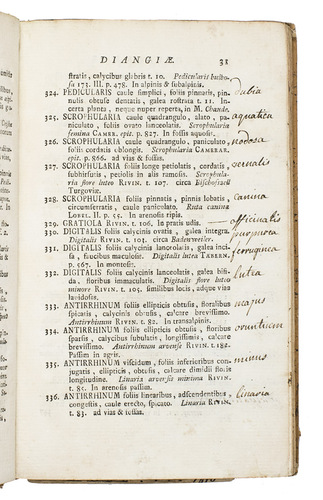 DIANGIÆ. 31
stratis, calycibus glabris t. 10. Pedicularis bulbo-
sa 173. III. p. 478. In alpinis & subalpinis.
324. PEDICULARIS caule simplici, foliis pinnatis, pin- dubia
nulis obtuse dentatis, galea rostrata t. 11. In-
certa planta, neque nuper reperta, in M. Chaude.
325. SCROPHULARIA caule quadrangulo, alato, pa- aquatica
niculato, foliis ovato lanceolatis. Scrophularia
femina CAMER. epit. p. 827. In fossis aquosis.
326. SCROPHULARIA caule quadrangulo, paniculato, nodosa
foliis cordatis oblongis. Scrophularia CAMERAR.
epit. p. 866. ad vias & fossas.
327. SCROPHULARIA foliis longe petiolatis, cordatis, vernalis
subhirsutis, petiolis in alis ramosis. Scrophula-
ria flore luteo RIVIN. t. 107. circa Bischofzell
Turgoviæ.
328. SCROPHULARIA foliis pinnatis, pinnis lobatis, canina
circumserratis, caule paniculato. Ruta canina
LOBEL. II. p. 55. In arenosis ripis.
329. GRATIOLA RIVIN. t. 106. In pratis udis. officinalis
330. DIGITALIS calycinis ovatis, galea integra. purpurea
Digitalis RIVIN. t. 104. circa Badenweiler.
331. DIGITALIS foliis calycinis lanceolatis, galea inci- ferruginea
sa, faucibus maculosis. Digitalis lutea TABERN.
p. 567. In montosis.
332. DIGITALIS foliis calycinis lanceolatis, galea bifi- lutea
da, floribus immaculatis. Digitalis flore luteo
minore RIVIN. t. 105. similibus locis, adque vias
lapidosas.
333. ANTIRRHINUM foliis ellipticis obtusis, floralibus majus
spicatis, calycinis obtusis, calcare brevissimo.
Antirrhinum RIVIN. t. 82. In transalpinis.
334. ANTIRRHINUM foliis ellipticis obtusis, floribus orontium
sparsis, calycibus subulatis, longissimis, calcare
brevissimo. Antirrhinum arvense RIVIN. t. 182.
Passim in agris.
335. ANTIRRHINUM viscidum, foliis inferioribus con- minus
jugatis, ellipticis, obtusis, calcare dimidii floris
longitudine. Linaria arvensis minima RIVIN.
t. 85. In arenosis passim.
336. ANTIRRHINUM foliis linearibus, adscendentibus, linaria
congestis, caule erecto, spicato. Linaria RIVIN.
t. 83. ad vias & fossas.